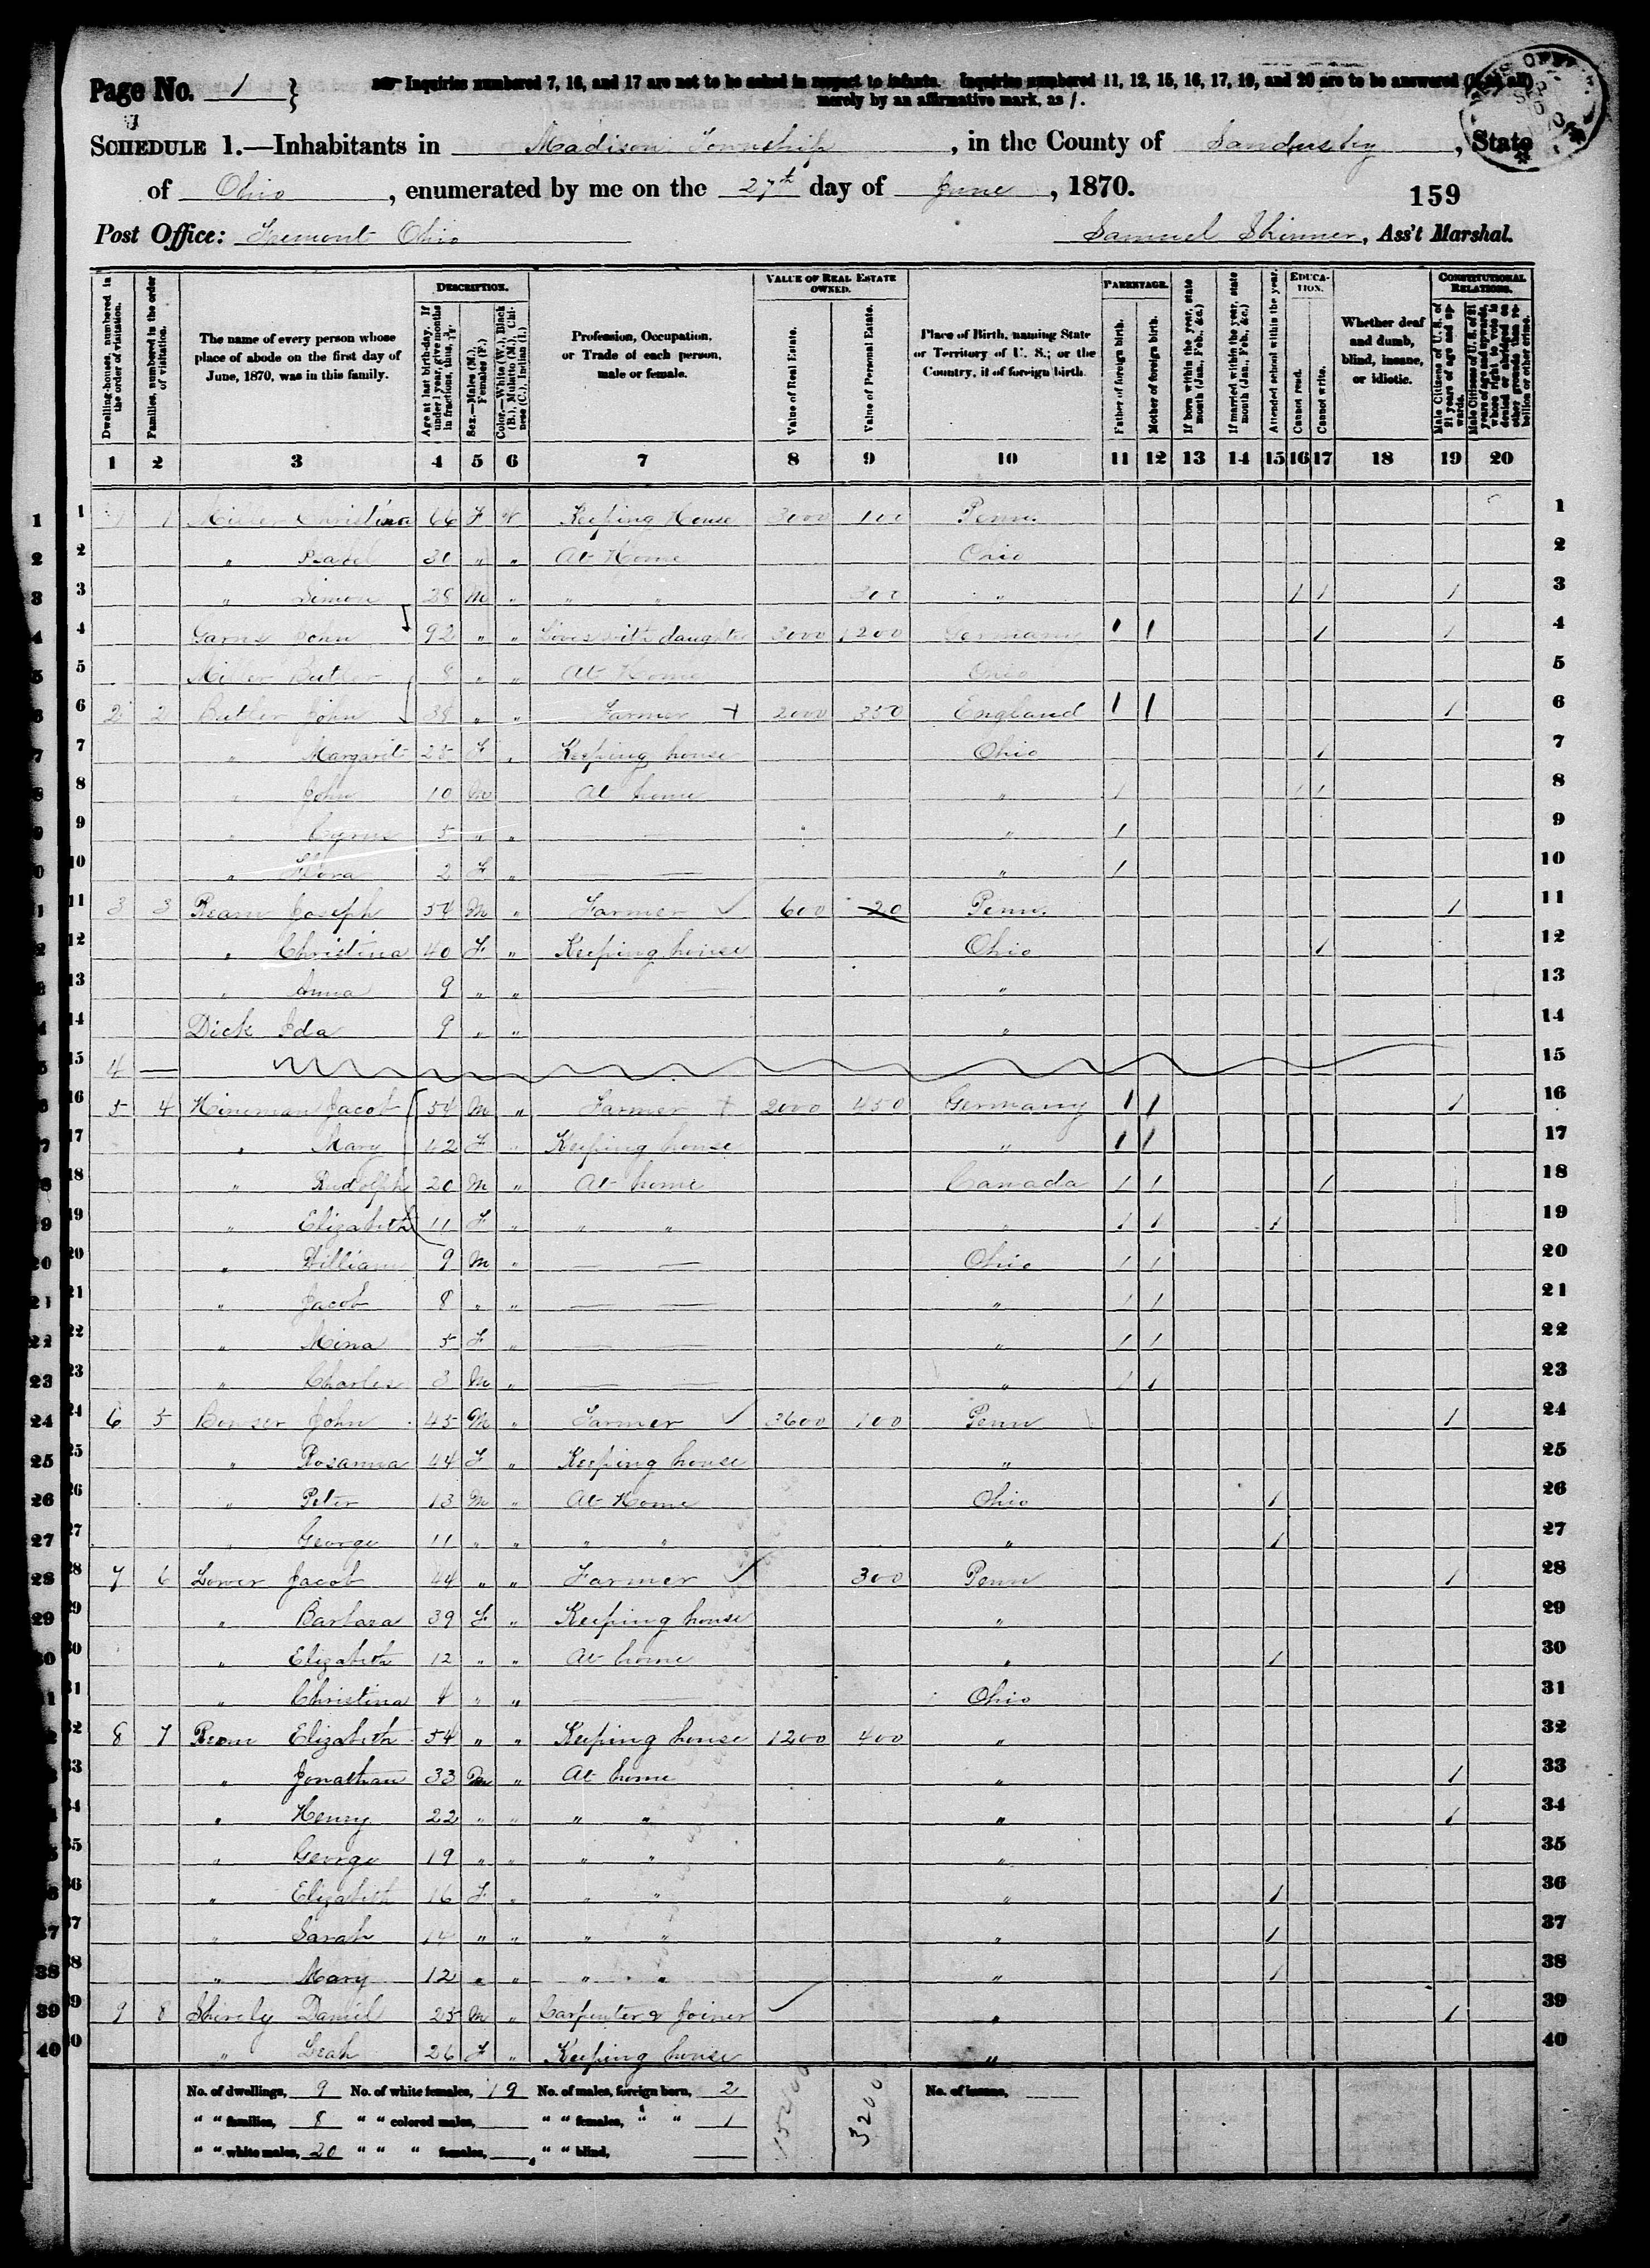 Page No. 1
Inquiries numbered 7, 16, and 17 are not to be asked in respect to infants. Inquiries numbered 11, 12, 15, 16, 17, 19, and 20 are to be answered (if at all)
merely by an affirmative mark, as /.
SCHEDULE 1.—Inhabitants in Madison Township, in the County of Sandusky, State
of Ohio, enumerated by me on the 27th day of June, 1870.
159
Post Office: Fremont Ohio
Samuel Skinner, Ass't Marshal.
Dwelling-houses, numbered in the order of visitation.
Families, numbered in the order of visitation.
The name of every person whose place of abode on the first day of June, 1870, was in this family.
DESCRIPTION.
Age at last birth-day. If under 1 year, give months in fractions, thus, 3/12.
Sex.—Males (M.), Females (F.)
Color.—White (W.), Black (B.), Mulatto (M.), Chinese (C.), Indian (I.)
Profession, Occupation, or Trade of each person, male or female.
VALUE OF REAL ESTATE OWNED.
Value of Real Estate.
Value of Personal Estate.
Place of Birth, naming State or Territory of U. S.; or the Country, if of foreign birth.
PARENTAGE.
Father of foreign birth.
Mother of foreign birth.
If born within the year, state month (Jan., Feb., &c.)
If married within the year, state month (Jan., Feb., &c.)
Attended school within the year.
EDUCATION.
Cannot read.
Cannot write.
Whether deaf and dumb, blind, insane, or idiotic.
CONSTITUTIONAL RELATIONS.
Male Citizens of U. S. of 21 years of age and upwards.
Male Citizens of U. S. of 21 years of age and upwards, whose right to vote is denied or abridged on other grounds than rebellion or other crime.
1 2 3 4 5 6 7 8 9 10 11 12 13 14 15 16 17 18 19 20
1 1 1 Miller Christina 66 F W Keeping House 3000 100 Penn. 1
2 " Isabel 30 " " At Home Ohio 2
3 " Simon 28 M " " " 300 " / / / 3
4 Garns John 92 " " Lives with daughter 3000 1200 Germany / / / / 4
5 Miller Butler 8 " " At Home Ohio 5
6 2 2 Butler John 38 " " Farmer + 2000 350 England / / / 6
7 " Margarit 25 F " Keeping house Ohio / 7
8 " John 10 M At home " / / / 8
9 " Cyrus 5 " " — — " / 9
10 " Flora 2 F " — — " / 10
11 3 3 Ream Joseph 54 M " Farmer ✓ 600 20 Penn. / 11
12 " Christina 40 F " Keeping house Ohio / 12
13 " Anna 9 " " — " 13
14 Dick Ida 9 " " " 14
15 4 — 15
16 5 4 Hineman Jacob 54 M " Farmer + 2000 450 Germany / / / 16
17 " Mary 42 F " Keeping house " / / 17
18 " Rudolph 20 M " At home Canada / / / 18
19 " Elizabeth 11 F " " " " / / / 19
20 " William 9 M " — — Ohio / / 20
21 " Jacob 8 " " — — " / / 21
22 " Mina 5 F " — — " / / 22
23 " Charles 3 M " — — " / / 23
24 6 5 Bowser John 45 M " Farmer ✓ 3600 100 Penn / 24
25 " Rosanna 44 F " Keeping house " 25
26 " Peter 13 M " At Home Ohio / 26
27 " George 11 " " " " " / 27
28 7 6 Lower Jacob 44 " " Farmer ✓ 300 Penn / 28
29 " Barbara 39 F " Keeping house " 29
30 " Elizabeth 12 " " At home " / 30
31 " Christina 8 " " — Ohio 31
32 8 7 Ream Elizabeth 54 " " Keeping house 1200 400 " 32
33 " Jonathan 33 M " At home " / 33
34 " Henry 22 " " " " " / 34
35 " George 19 " " " " " 35
36 " Elizabeth 16 F " " " " / 36
37 " Sarah 14 " " " " " / 37
38 " Mary 12 " " " " " / 38
39 9 8 Shively Daniel 25 M " Carpenter & Joiner ✓ " / 39
40 " Leah 26 F " Keeping house " 40
No. of dwellings, 9 No. of white females, 19 No. of males, foreign born, 2 15200 3200 No. of insane,
" " families, 8 " " colored males, " " females, " " 1
" " white males, 20 " " " females, " " blind,